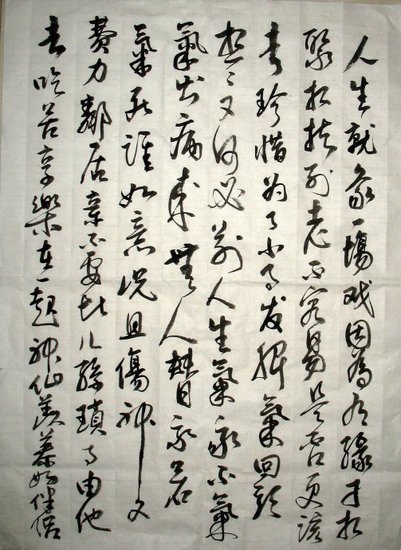 人生就象一場戏因為有緣才相
聚相扶到老不容易是否更該
去珍惜為了小事发脾氣回頭
想々又何必别人生氣我不氣
氣出病來無人替我若
氣死誰如意况且傷神又
費力鄰居亲不要比儿孫瑣事由他
去吃苦享樂在一起神仙羡慕好伴侣